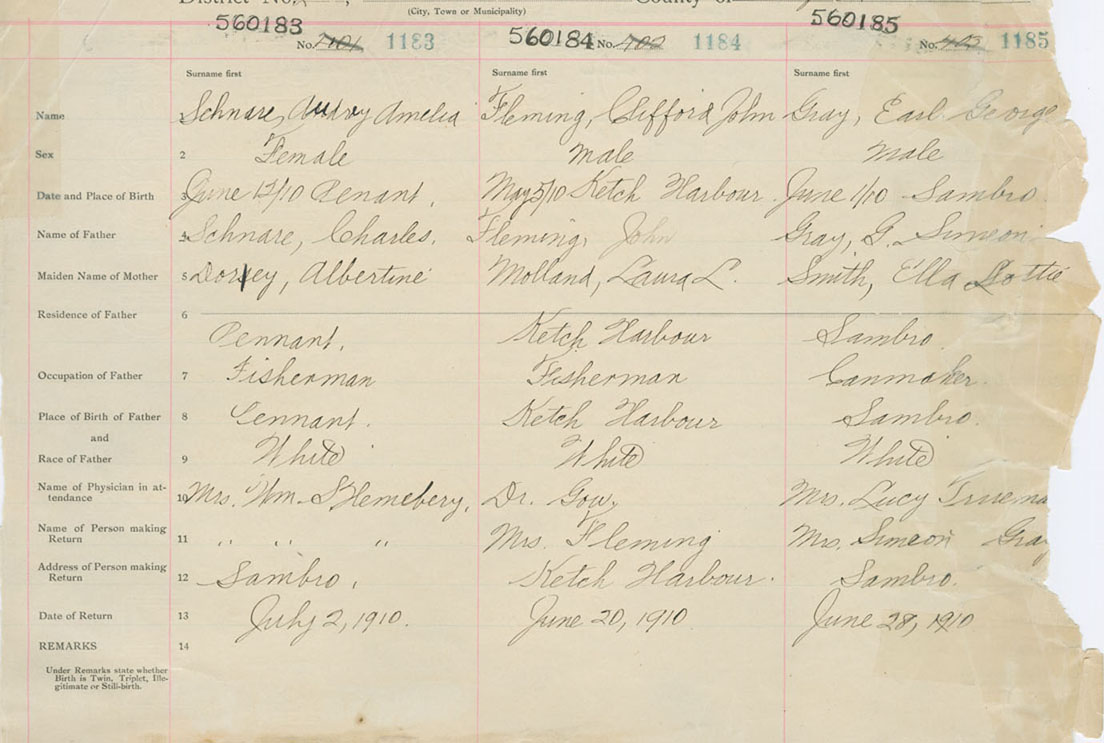 District No. County of
(City, Town or Municipality)
560183 560184 560185
No. 1183 No. 402 1184 No. 403 1185
Surname first Surname first Surname first
Name 1 Schnare, Audry Amelia Fleming, Clifford John Gray, Earl George
Sex 2 Female Male Male
Date and Place of Birth 3 June 12/10 Penant, May 5/10 Ketch Harbour June 1/10 Sambro
Name of Father 4 Schnare, Charles. Fleming, John Gray, G. Simeon
Maiden Name of Mother 5 Dorey, Albertine Molland, Laura L. Smith, Ella Lottie
Residence of Father 6
Pennant. Ketch Harbour Sambro
Occupation of Father 7 Fisherman Fisherman Canmaker.
Place of Birth of Father 8 Pennant. Ketch Harbour Sambro.
and
Race of Father 9 White White White
Name of Physician in at- 10 Mrs. Wm. Dr. Gow, Mrs. Lucy
tendance
Name of Person making 11 " " " Mrs. Fleming Mrs. Simeon Gra
Return
Address of Person making 12 Sambro, Ketch Harbour. Sambro.
Return
Date of Return 13 July 2, 1910. June 20, 1910 June 28, 1910
REMARKS 14
Under Remarks state whether
Birth is Twin, Triplet, Ille-
gitimate or Still-birth.